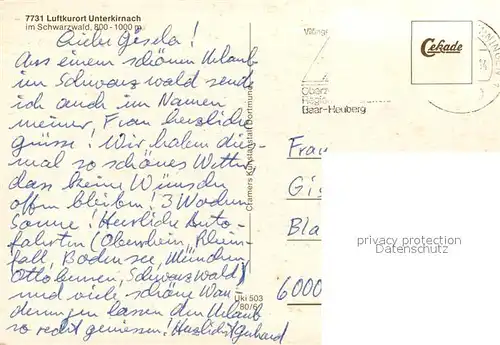 7731 Luftkurort Unterkirnach
im Schwarzwald, 800 - 1000 m
Liebe Gisela!
Aus einem schönen Urlaub
im Schwarzwald sende
ich auch im Namen
meiner Frau herzliche
Grüsse! Wir haben dies-
mal so schönes Wetter,
dass keine Wünsche
offen bleiben! 3 Wochen
Sonne! Herrliche Auto-
fahrten (Oberrhein, Rhein-
fall, Bodensee, München,
Ottobeuren, Schwarzwald)
und viele schöne Wan-
derungen lassen den Urlaub
so recht geniessen! Herzlichst Gerhard
Cramers Kunstanstalt Dortmund
Uki 503
80/6
Oberz
Regio
Baar-Heuberg
Cekade
Frau
Gis
Bla
6000
privacy protection
Datenschutz